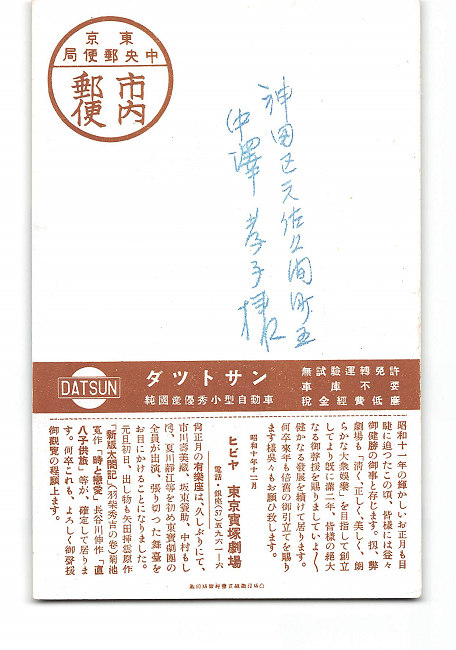 東京
中央郵便局
市内
郵便
神田区元佐久間町五
中澤孝子様
DATSUN
ダツトサン
純國産優秀小型自動車
無試驗運轉免許
車庫不要
税金經費低廉
昭和十一年の輝かしいお正月も目
睫に迫つたこの頃、皆樣には益々
御健勝の御事と存じます。扨、弊
劇場も「清く、正しく、美しく、朗
らかな大衆娯樂」を目指して創立
してより既に滿二年、皆樣の絕大
なる御聲援を賜りましていよ〱
健かなる發展を續けて居ります。
何卒來年も倍舊の御引立てを賜り
ます樣呉々もお願ひ致します。
昭和十年十二月
ヒビヤ 東京寶塚劇場
電話・銀座(57)五九六一―六
尙正月の有樂座は、久しぶりにて、
市川壽美藏、坂東簑助、中村もし
ほ、夏川靜江等を初め東寶劇團の
全員が出演、張り切つた舞臺を
お目にかけることになりました。
元旦初日、出し物も矢田揷雲原作
「新版太閤記」(羽柴秀吉の卷)菊池
寬作「時と戀愛」長谷川伸作「直
八子供旅」等が、確定して居りま
す。何卒これも、よろしく御聲援
御觀覽の程願上ます。